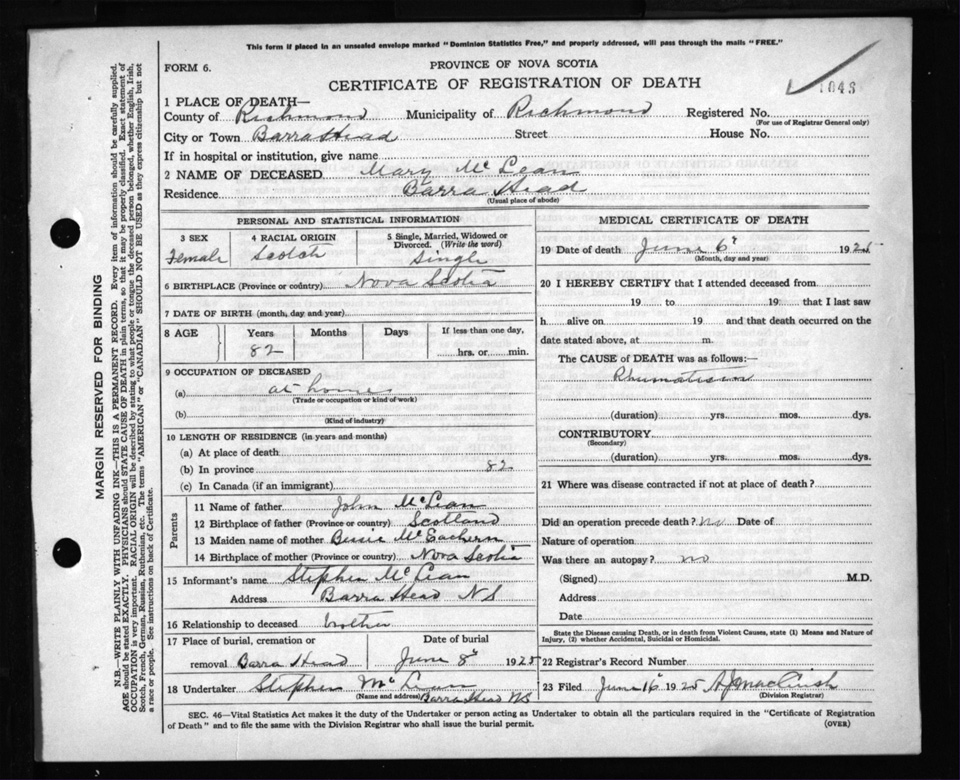 This form if placed in an unsealed envelope marked "Dominion Statistics Free," and properly addressed, will pass through the mails "FREE."
FORM 6.
PROVINCE OF NOVA SCOTIA
CERTIFICATE OF REGISTRATION OF DEATH
1043
1 PLACE OF DEATH—
County of Richmond Municipality of Richmond Registered No.
(For use of Registrar General only)
City or Town Barra Head Street House No.
If in hospital or institution, give name
2 NAME OF DECEASED Mary Mc Lean
Residence Barra Head
(Usual place of abode)
PERSONAL AND STATISTICAL INFORMATION
3 SEX 4 RACIAL ORIGIN 5 Single, Married, Widowed or Divorced. (Write the word)
Female Scotch Single
6 BIRTHPLACE (Province or country) Nova Scotia
7 DATE OF BIRTH (month, day and year)
8 AGE Years Months Days If less than one day,
82 hrs. or min.
9 OCCUPATION OF DECEASED
(a) at home
(Trade or occupation or kind of work)
(b)
(Kind of industry)
10 LENGTH OF RESIDENCE (in years and months)
(a) At place of death
(b) In province 82
(c) In Canada (if an immigrant)
Parents
11 Name of father John McLean
12 Birthplace of father (Province or country) Scotland
13 Maiden name of mother Bessie McEachern
14 Birthplace of mother (Province or country) Nova Scotia
15 Informant's name Stephen McLean
Address Barra Head NS
16 Relationship to deceased brother
17 Place of burial, cremation or Date of burial
removal Barra Head June 8 1925
18 Undertaker Stephen McLean
(Name and address) Barra Head NS
MEDICAL CERTIFICATE OF DEATH
19 Date of death June 6 1925
(Month, day and year)
20 I HEREBY CERTIFY that I attended deceased from
19 to 19 that I last saw
h alive on 19 and that death occurred on the
date stated above, at m.
The CAUSE of DEATH was as follows:—
Rhumatism
(duration) yrs. mos. dys.
CONTRIBUTORY
(Secondary)
(duration) yrs. mos. dys.
21 Where was disease contracted if not at place of death?
Did an operation precede death? no Date of
Nature of operation
Was there an autopsy? no
(Signed) M.D.
Address
Date
State the Disease causing Death, or in death from Violent Causes, state (1) Means and Nature of
Injury, (2) whether Accidental, Suicidal or Homicidal.
22 Registrar's Record Number
23 Filed June 16 1925
(Division Registrar)
SEC. 46—Vital Statistics Act makes it the duty of the Undertaker or person acting as Undertaker to obtain all the particulars required in the "Certificate of Registration
of Death" and to file the same with the Division Registrar who shall issue the burial permit. (OVER)
MARGIN RESERVED FOR BINDING
N.B.—WRITE PLAINLY WITH UNFADING INK—THIS IS A PERMANENT RECORD. Every item of information should be carefully supplied.
AGE should be stated EXACTLY. PHYSICIANS should STATE CAUSE OF DEATH in plain terms, so that it may be properly classified. Exact statement of
OCCUPATION is very important. RACIAL ORIGIN will be described by stating to what people or tongue the deceased person belonged, whether English, Irish,
Scotch, French, German, Russian, Ruthenian, etc. The terms "AMERICAN" or "CANADIAN" SHOULD NOT BE USED as they express citizenship but not
a race or people. See instructions on back of Certificate.